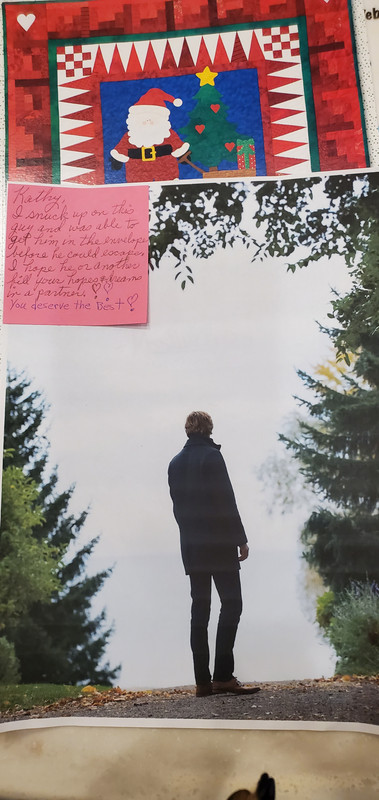 eb
Kathy,
I snuck up on this
guy and was able to
get him in the envelope
before he could escape.
I hope he, or another
fill your hopes & dreams
in a partner. ♡♡
You deserve the Best ♡